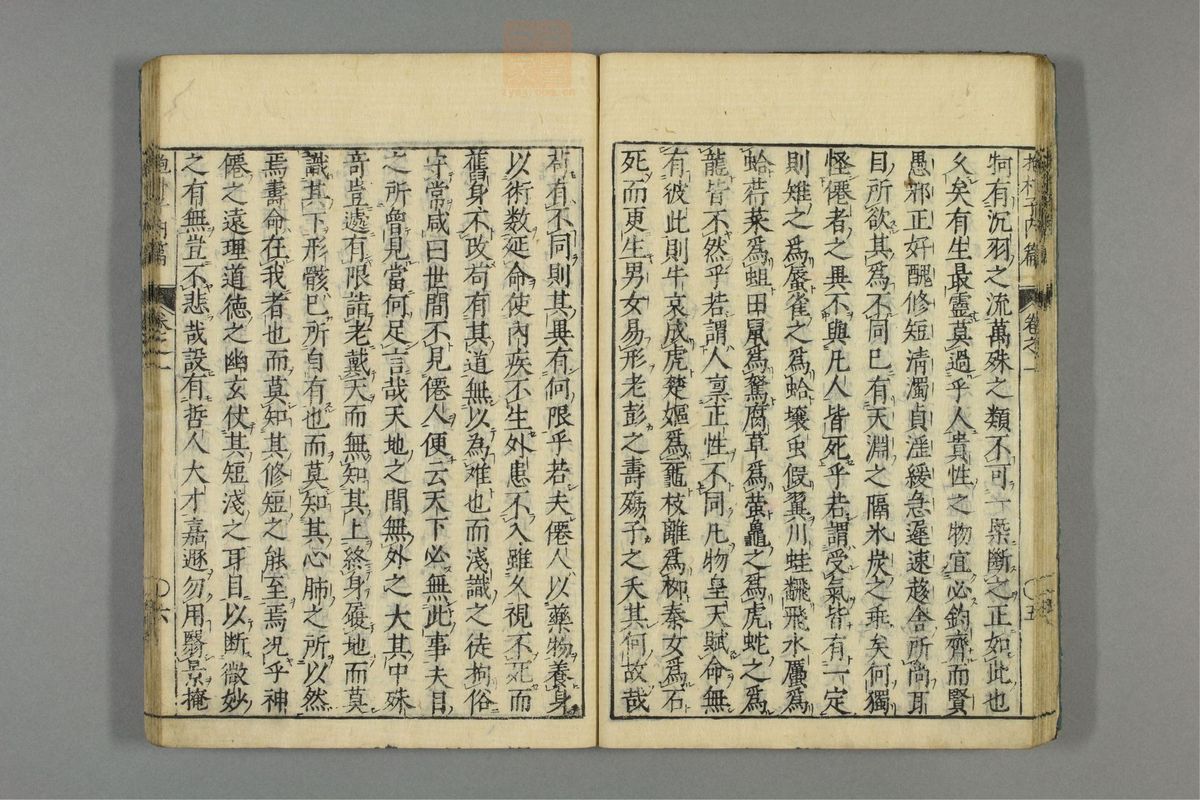 牱有沉羽之流萬殊之類不可一槩斷之正如此也
乆矣有生最靈莫過乎人貴性之物宜必鈞齊而賢
愚邪正好醜修短清濁貞淫緩急遲速趍舍所尚耳
目所欲其爲不同已有天淵之隔氷炭之乖矣何獨
怪僊者之異不與凡人皆死乎若謂受氣皆有一定
則雉之爲蜃雀之爲蛤壤虫假翼川蛙飜飛水蠣爲
蛤荇菜爲蛆田鼠爲鴽腐草爲螢鼉之爲虎蛇之爲
龍皆不然乎若謂人禀正性不同凡物皇天賦命無
有彼此則牛哀成虎楚嫗爲黿枝離爲柳秦女爲石
死而更生男女易形老彭之壽殤子之夭其何故哉
苟有不同則其異有何限乎若夫僊人以藥物養身
以術数延命使內疾不生外患不入雖久視不死而
舊身不改苟有其道無以為难也而淺識之徒拘俗
守常咸曰世間不見僊人便云天下必無此事夫目
之所曾見當何足言哉天地之間無外之大其中殊
竒豈遽有限詣老戴天而無知其上終身履地而莫
識其下形骸已所自有也而莫知其心肺之所以然
焉壽命在我者也而莫知其修短之能至焉况乎神
僊之遠理道徳之幽玄仗其短淺之耳目以断微妙
之有無豈不悲哉設有哲人大才嘉遯勿用翳景掩
卷之一
〇五
内篇
卷之一
〇六